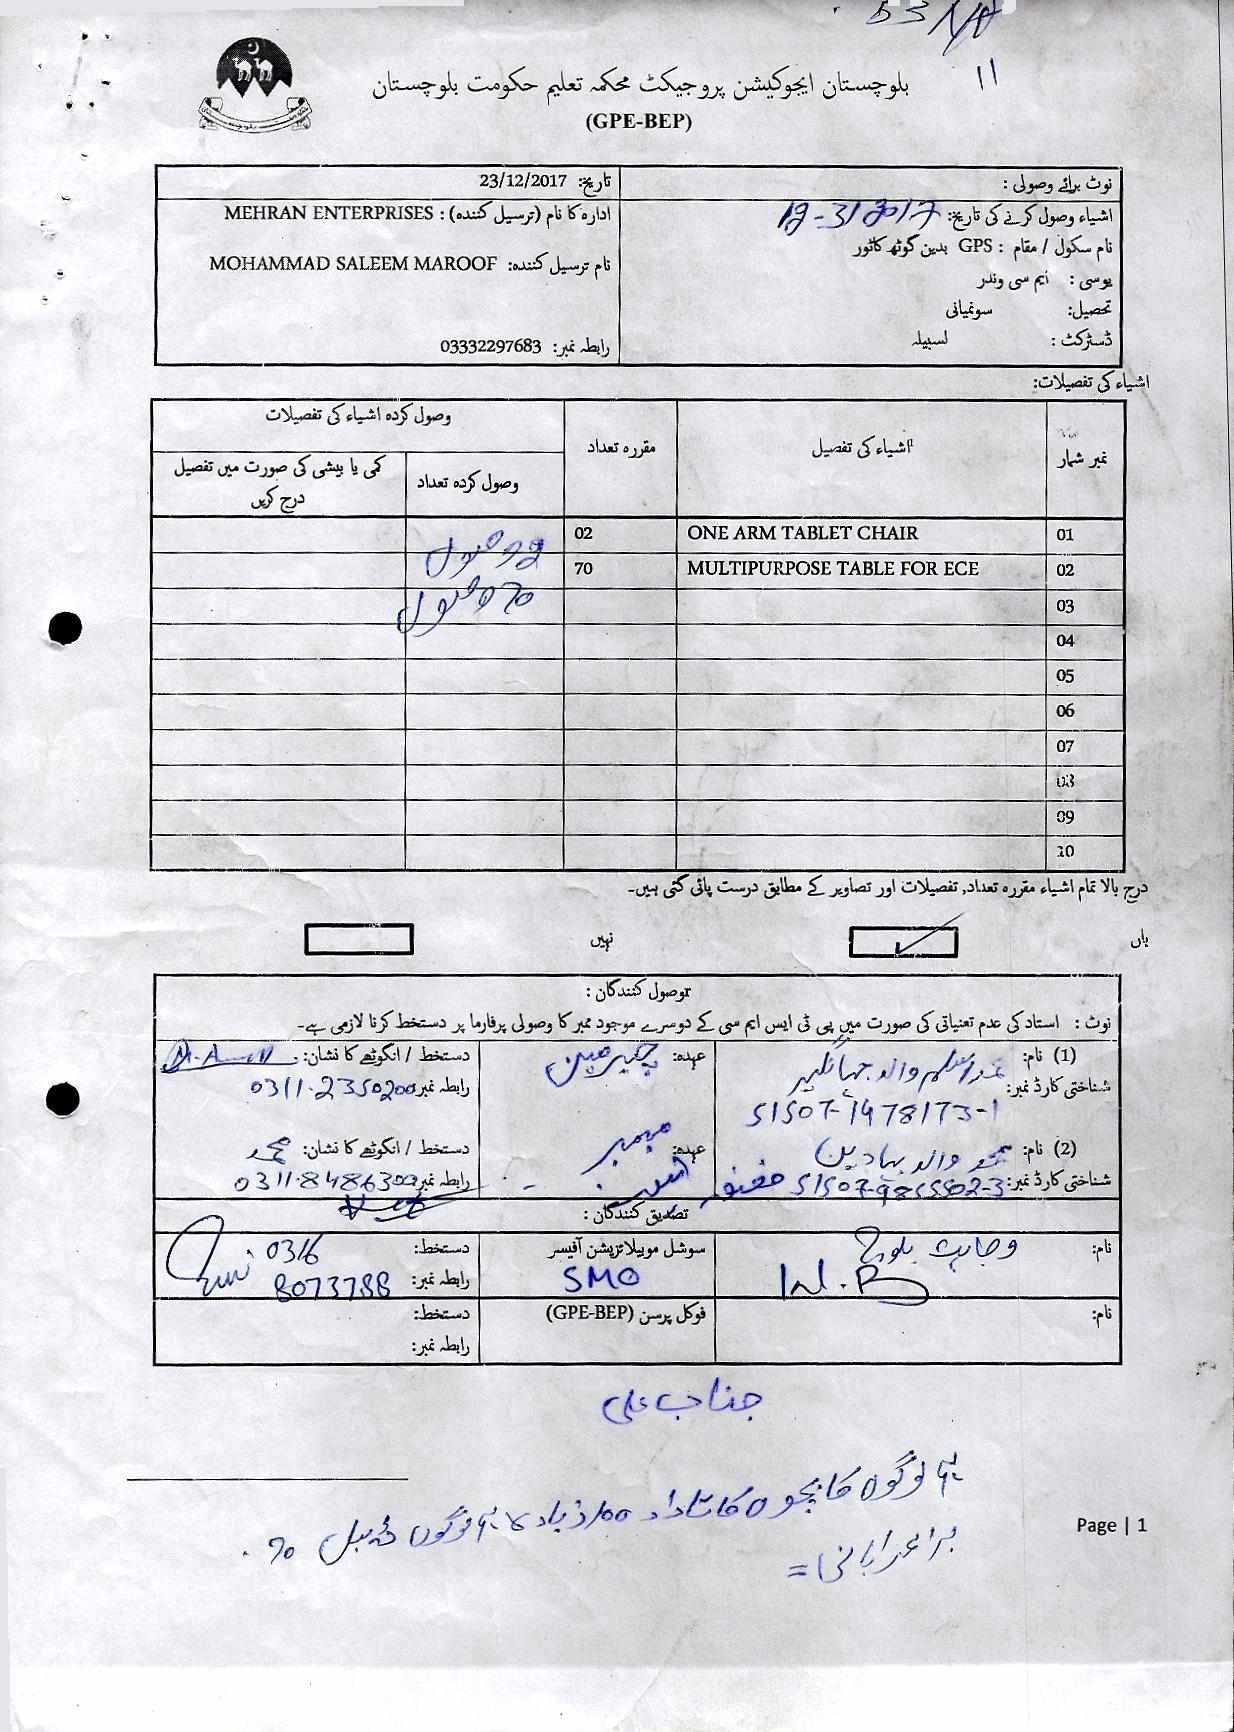 53
11
بلوچستان ایجوکیشن پروجیکٹ محکمہ تعلیم حکومت بلوچستان
(GPE-BEP)
نوٹ برائے وصولی :
اشیاء وصول کرنے کی تاریخ:
نام سکول / مقام : GPS بدین گوٹھ کاٹور
یوسی : ایم سی وندر
تحصیل: سونمیانی
ڈسٹرکٹ : لسبیلہ
تاریخ: 23/12/2017
ادارہ کا نام (ترسیل کنندہ) : MEHRAN ENTERPRISES
نام ترسیل کنندہ: MOHAMMAD SALEEM MAROOF
رابطہ نمبر: 03332297683
اشیاء کی تفصیلات:
نمبر شمار اشیاء کی تفصیل مقررہ تعداد وصول کردہ اشیاء کی تفصیلات
وصول کردہ تعداد کمی یا بیشی کی صورت میں تفصیل درج کریں
01 ONE ARM TABLET CHAIR 02 وصول
02 MULTIPURPOSE TABLE FOR ECE 70 70 وصول
03
04
05
06
07
08
09
10
درج بالا تمام اشیاء مقررہ تعداد, تفصیلات اور تصاویر کے مطابق درست پائی گئی ہیں۔
ہاں ✓ نہیں
وصول کنندگان :
نوٹ : استاد کی عدم تعنیاتی کی صورت میں پی ٹی ایس ایم سی کے دوسرے موجود ممبر کا وصولی پرفارما پر دستخط کرنا لازمی ہے۔
(1) نام: محمد اسلم والد جہانگیر عہدہ: چیرمین دستخط / انگوٹھے کا نشان:
شناختی کارڈ نمبر: 51507-7478173-1 رابطہ نمبر 0311-2350200
(2) نام: محمد والد بہادین عہدہ: میمبر دستخط / انگوٹھے کا نشان: محمد
شناختی کارڈ نمبر: 51507-9855502-3 رابطہ نمبر 0311-8486300
تصدیق کنندگان :
نام: وجاہت بلوچ سوشل موبیلائزیشن آفیسر دستخط: 0316
W.B SMO رابطہ نمبر: 8073788
نام: فوکل پرسن (GPE-BEP) دستخط:
رابطہ نمبر:
جناب علی
لوگوں کا بچوں کا تاداد 100 زیادہ لوگوں ٹیبل 70
Page | 1